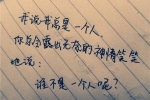 我说我总是一个人，
你总会露出无奈的神情笑笑
地说：
谁不是一个人呢？